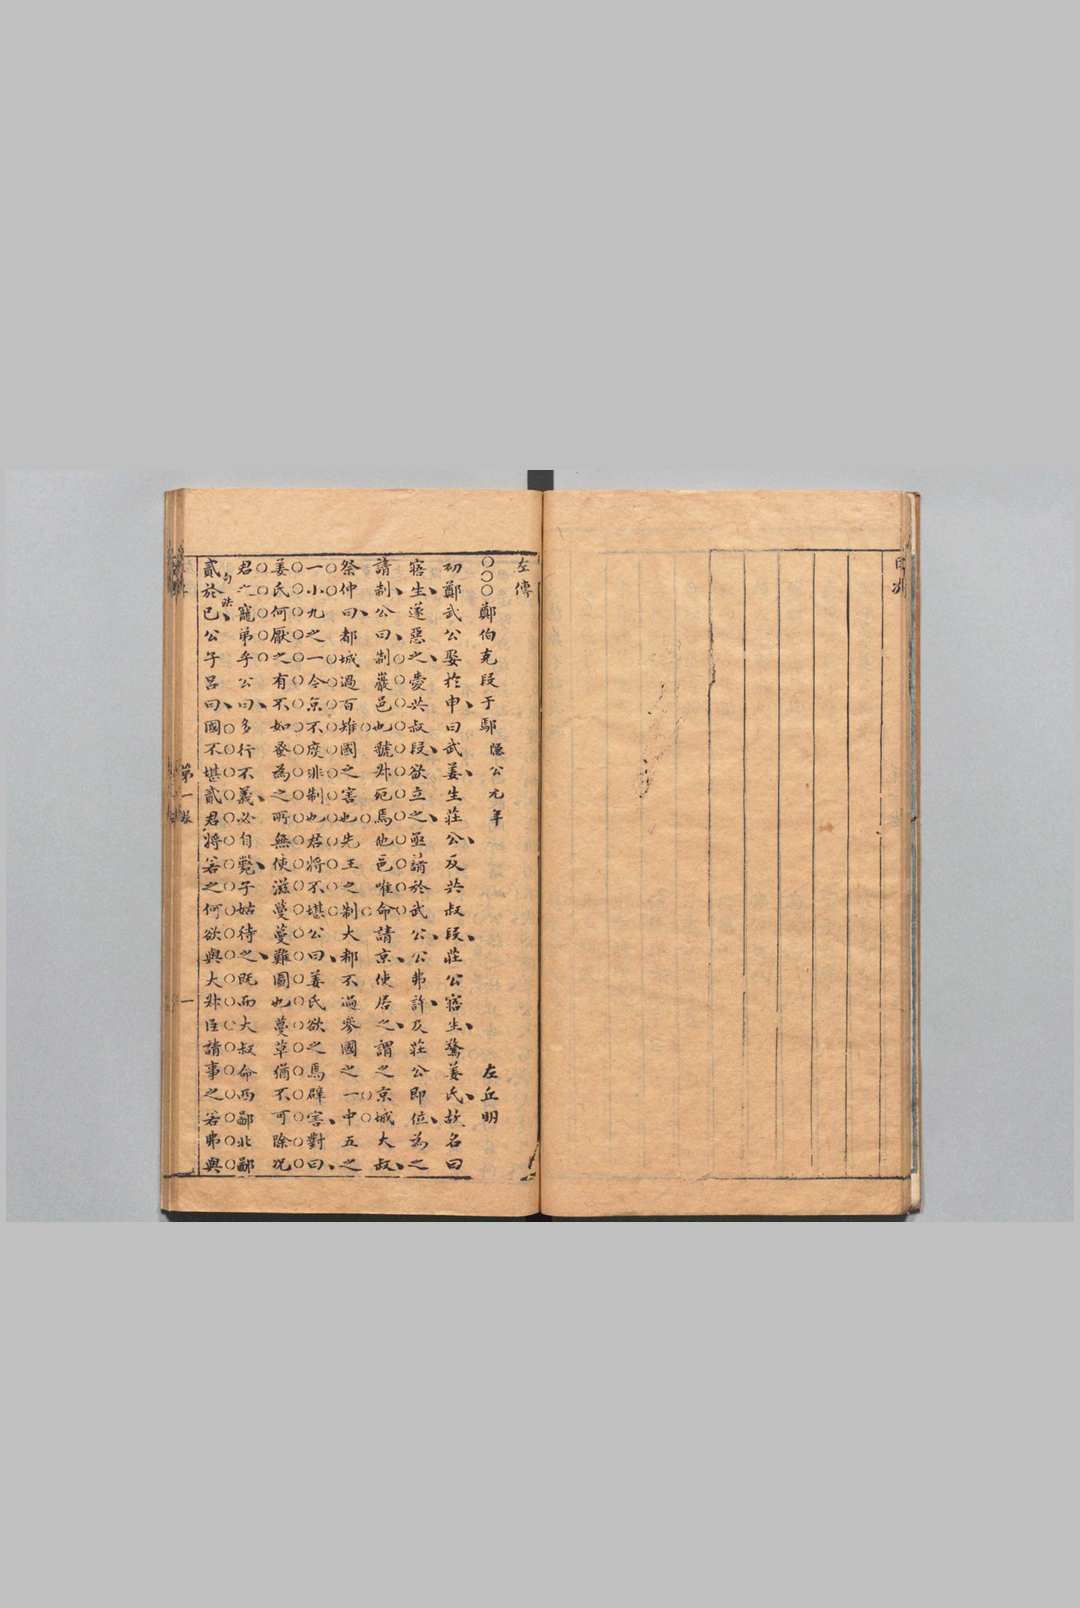 目次
左傳
○○○鄭伯克段于鄢 隱公元年 左丘明
初鄭武公娶於申曰武姜生莊公及共叔段莊公寤生驚姜氏故名曰
寤生遂惡之愛共叔段欲立之亟請於武公公弗許及莊公即位為之
請制公曰制巖邑也虢叔死焉他邑唯命請京使居之謂之京城大叔
祭仲曰都城過百雉國之害也先王之制大都不過參國之一中五之
一小九之一今京不度非制也君將不堪公曰姜氏欲之焉辟害對曰
姜氏何厭之有不如蚤為之所無使滋蔓蔓難圖也蔓草猶不可除况
君之寵弟乎公曰多行不義必自斃子姑待之既而大叔命西鄙北鄙
句法
貳於己公子呂曰國不堪貳君將若之何欲與大叔臣請事之若弗與
第一
一